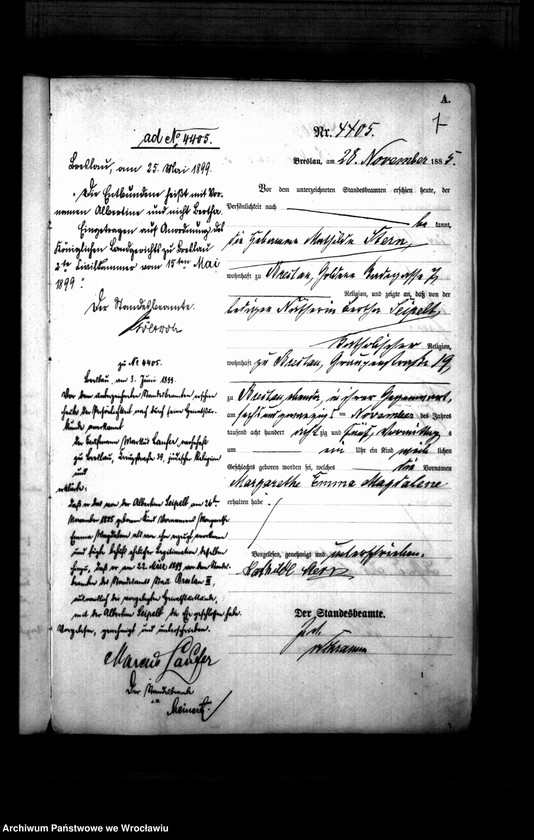 A.
ad No 4405.
Breslau, am 25. Mai 1899.
Die Entbundene heißt mit Vor-
namen Albertine und nicht Bertha.
Eingetragen auf Anordnung des
Königlichen Landgerichts zu Breslau
2te Civilkammer vom 15ten Mai
1899.
Der Standesbeamte.
zu No 4405.
Breslau, am 3. Juni 1899.
Vor dem unterzeichneten Standesbeamten erschien
heute, der Persönlichkeit nach durch
bekannt
der Kaufmann Marcus Laufer, wohnhaft
zu Breslau, 39, jüdischer Religion
und
erklärte:
Daß er das von der Albertine Seipelt am 26ten
November 1885 geborene Kind Vornamens Margarethe
Emma Magdalene als von ihm erzeugt anerkenne
und
daß er am 22. 1899 vor dem Standes-
beamten des Standesamts Breslau II,
mit der Albertine Seipelt die Ehe geschlossen habe.
Vorgelesen, genehmigt und unterschrieben.
Marcus Laufer
Der Standesbeamte
Nr. 4405.
Breslau, am 28. November 1885.
Vor dem unterzeichneten Standesbeamten erschien heute, der
Persönlichkeit nach
be kannt,
die Hebamme Mathilde Stern,
wohnhaft zu Breslau, Goldene Radegasse 7,
Religion, und zeigte an, daß von der
ledigen Näherin Bertha Seipelt,
katholischer Religion,
wohnhaft zu Breslau, Graupenstraße 19,
zu Breslau, ebenda, in ihrer Gegenwart,
am sechsundzwanzigsten November des Jahres
tausend acht hundert achtzig und fünf, Vormittags
um ein Uhr ein Kind weiblichen
Geschlechts geboren worden sei, welches die Vornamen
Margarethe Emma Magdalene
erhalten habe
Vorgelesen, genehmigt und unterschrieben.
Mathilde Stern
Der Standesbeamte.
1
Archiwum Państwowe we Wrocławiu